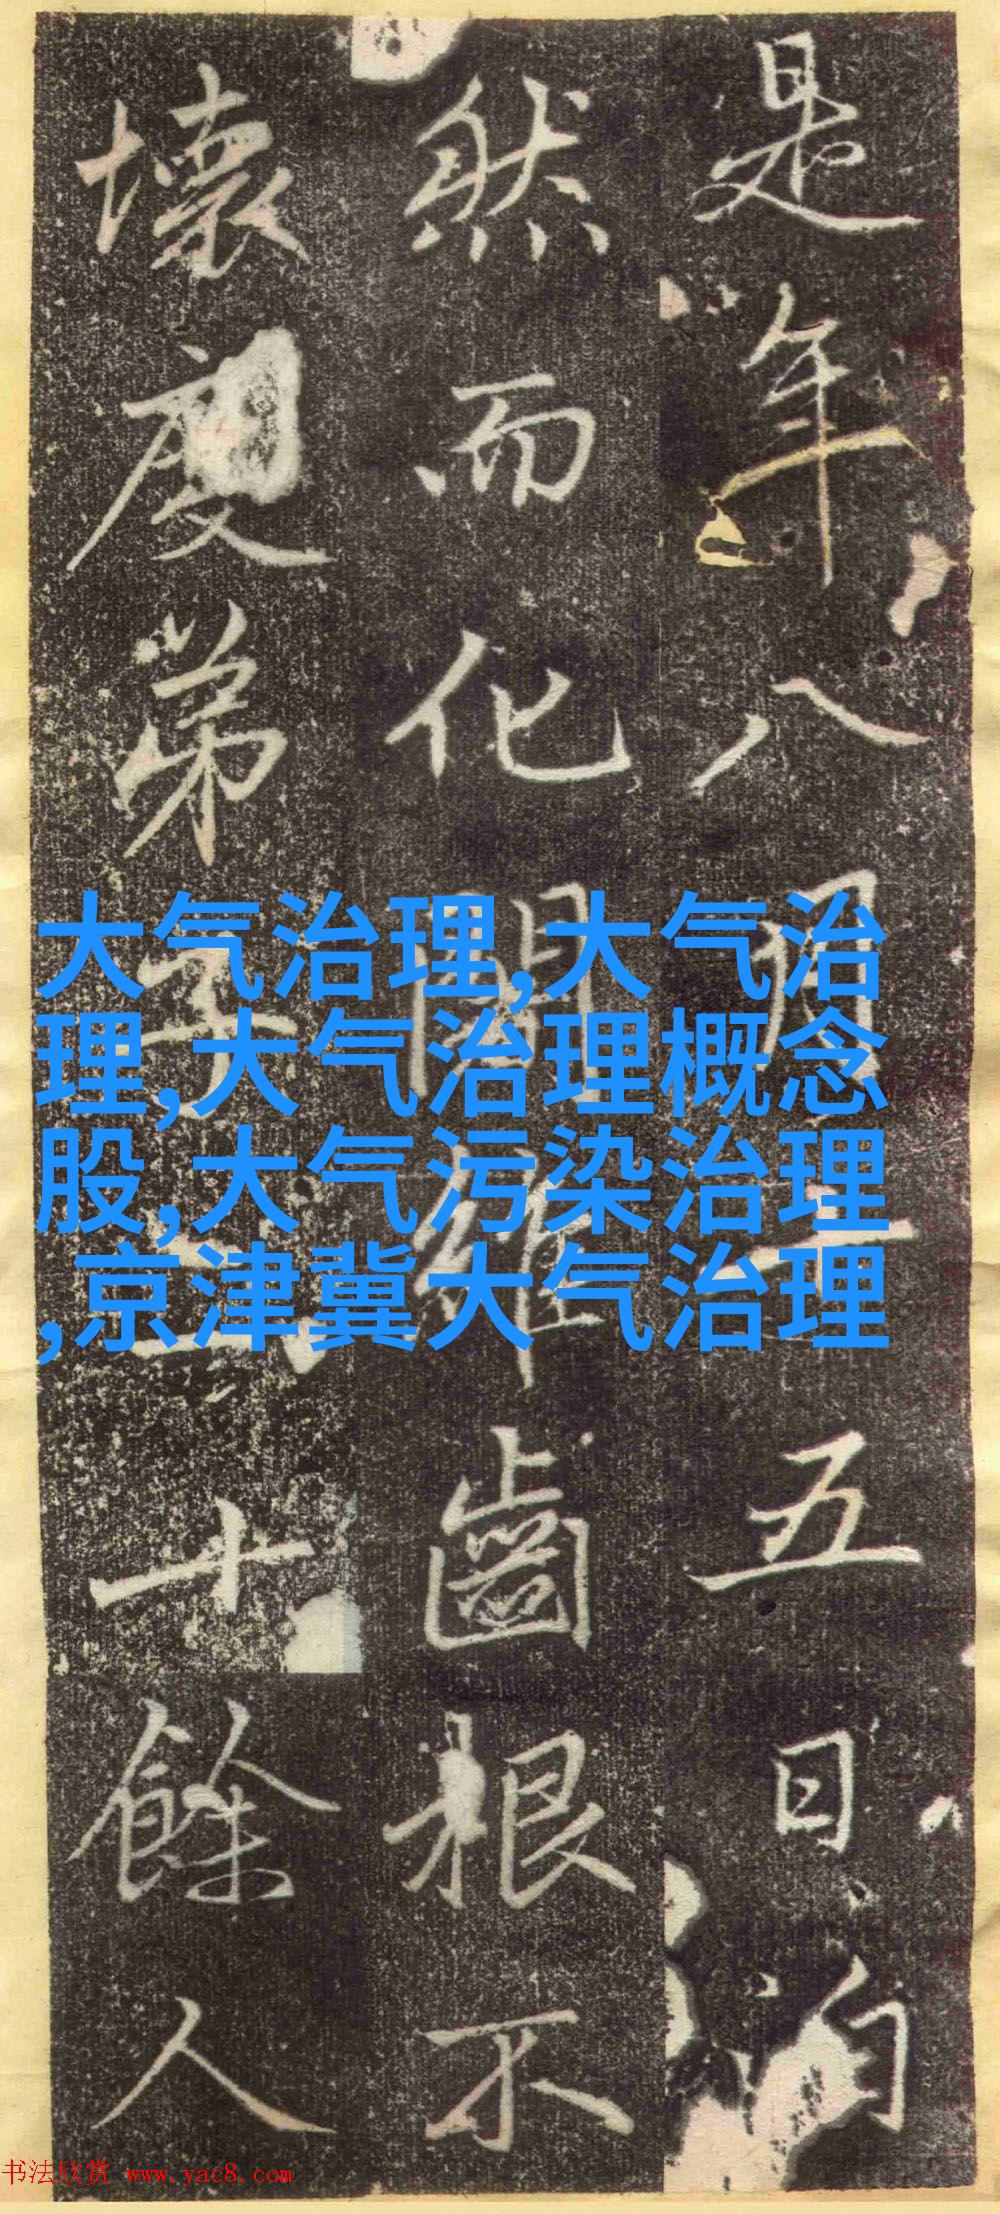 是年八月五日
然而化維齒根不
壞度弟子十餘人
大气治理,大气治
理,大气治理概念
股,大气污染治理
,京津冀大气治理
书法欣赏 www.yac8.com